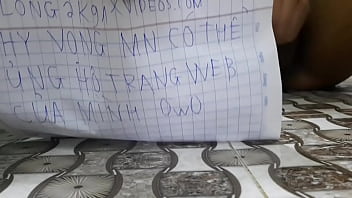 LONG2K91XVIDEOS.COM
HY VỌNG MN CÓ THỂ
ỦNG HỘ TRANG WEB
CỦA MÌNH OWO